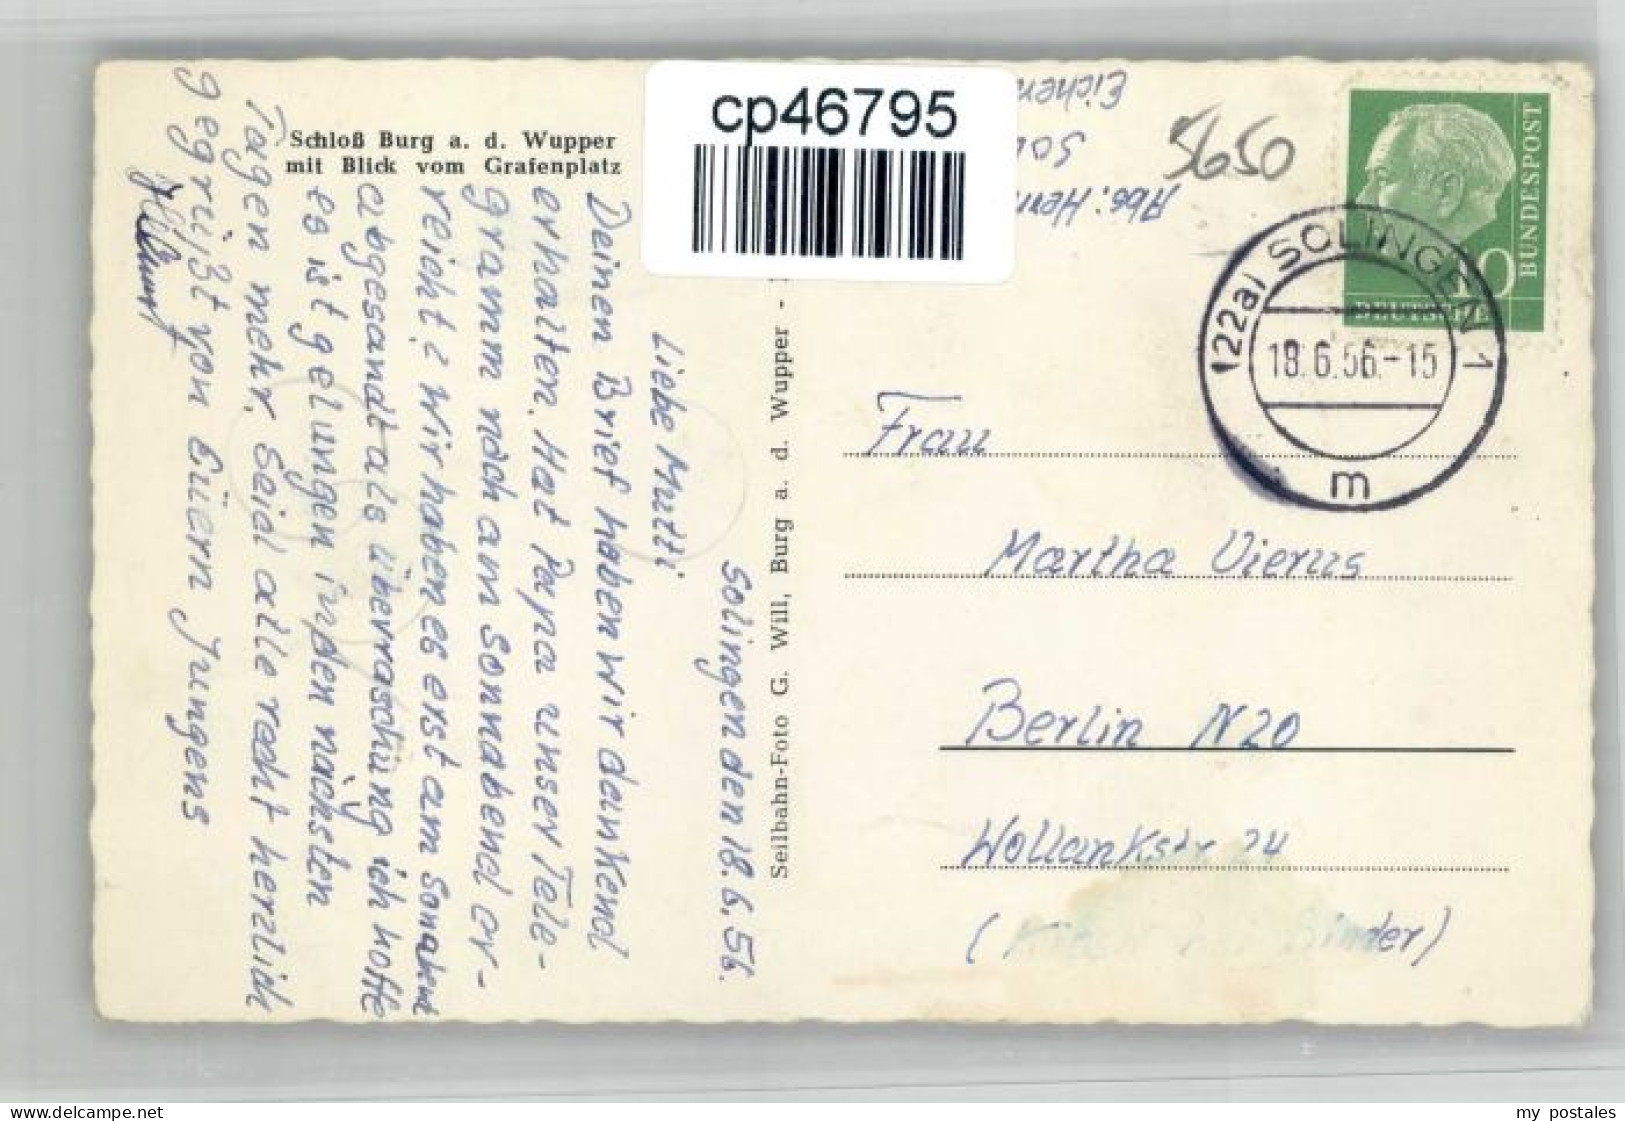 cp46795
Schloß Burg a. d. Wupper
mit Blick vom Grafenplatz
Solingen den 18.6.56.
Liebe Mutti
Deinen Brief haben wir dankend
erhalten. Hat Papa unser Tele-
gramm noch am Sonnabend er-
reicht? wir haben es erst am Sonnabend
abgesandt als Überraschung ich hoffe
es ist gelungen in den nächsten
Tagen mehr. Seid alle recht herzlich
gegrüßt von Euern Jungens
Helmut
Seilbahn-Foto G. Will, Burg a. d. Wupper -
Abs:
5650
BUNDESPOST
10
DEUTSCHE
(22a) SOLINGEN 1
18.6.56.-15
m
Frau
Martha Vierus
Berlin N20
Wollankstr 24
my postales
www.delcampe.net